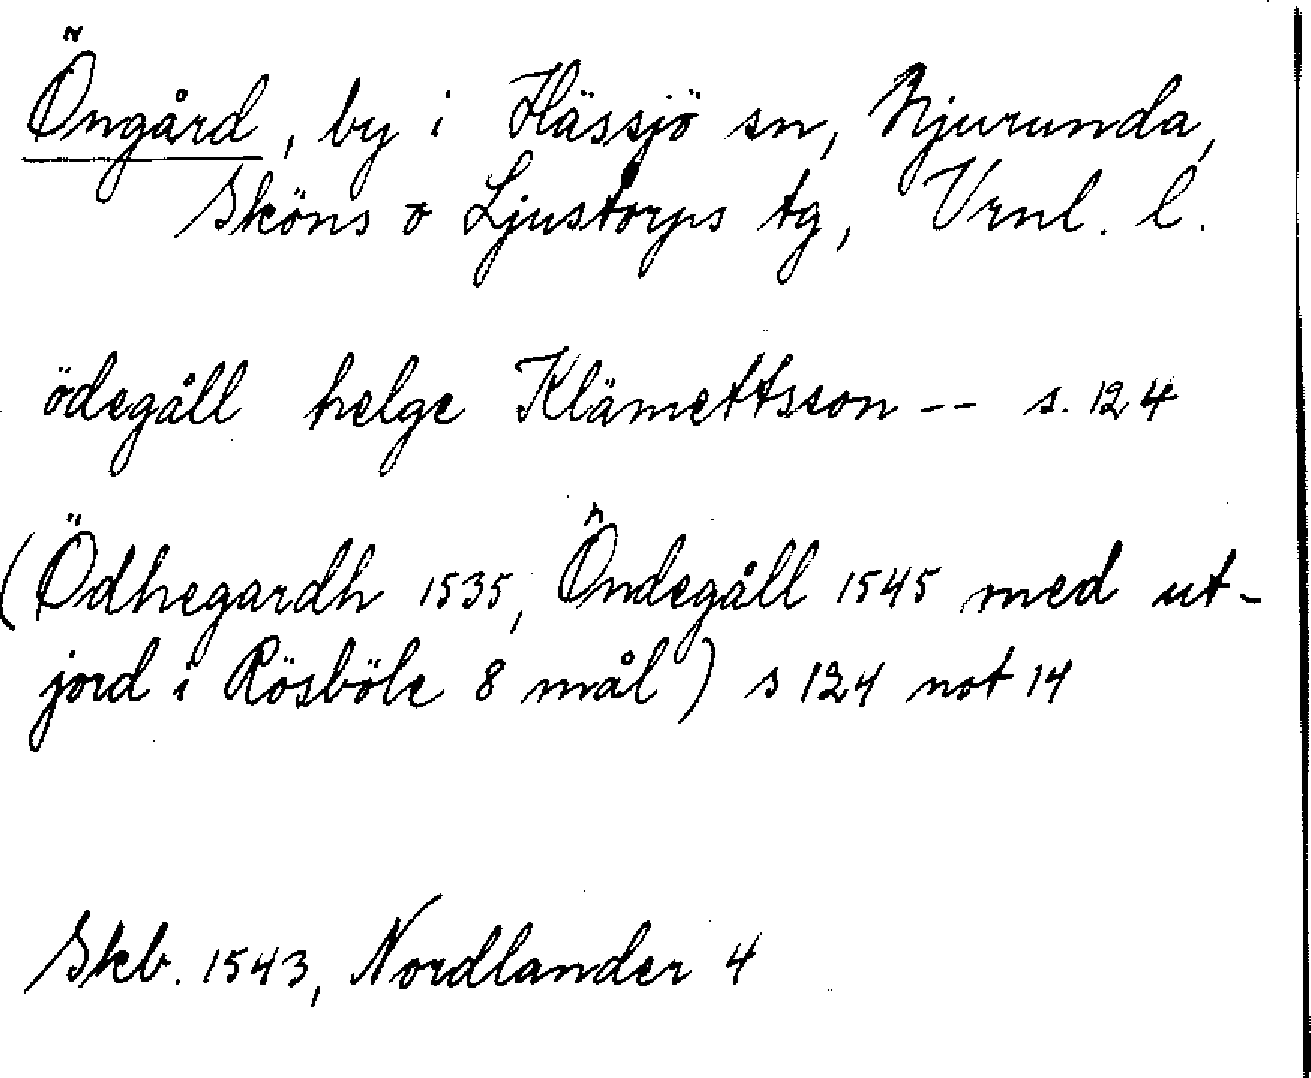 Öngård, by i Hässjö sn, Njurunda,
Sköns o Ljustorps tg, Vrnl. l.
ödegåll helge Klämettsson -- s. 124
(Ödhegardh 1535, Öndegåll 1545 med ut-
jord i Rösböle 8 mål) s 124 not 14
Skb. 1543, Nordlander 4